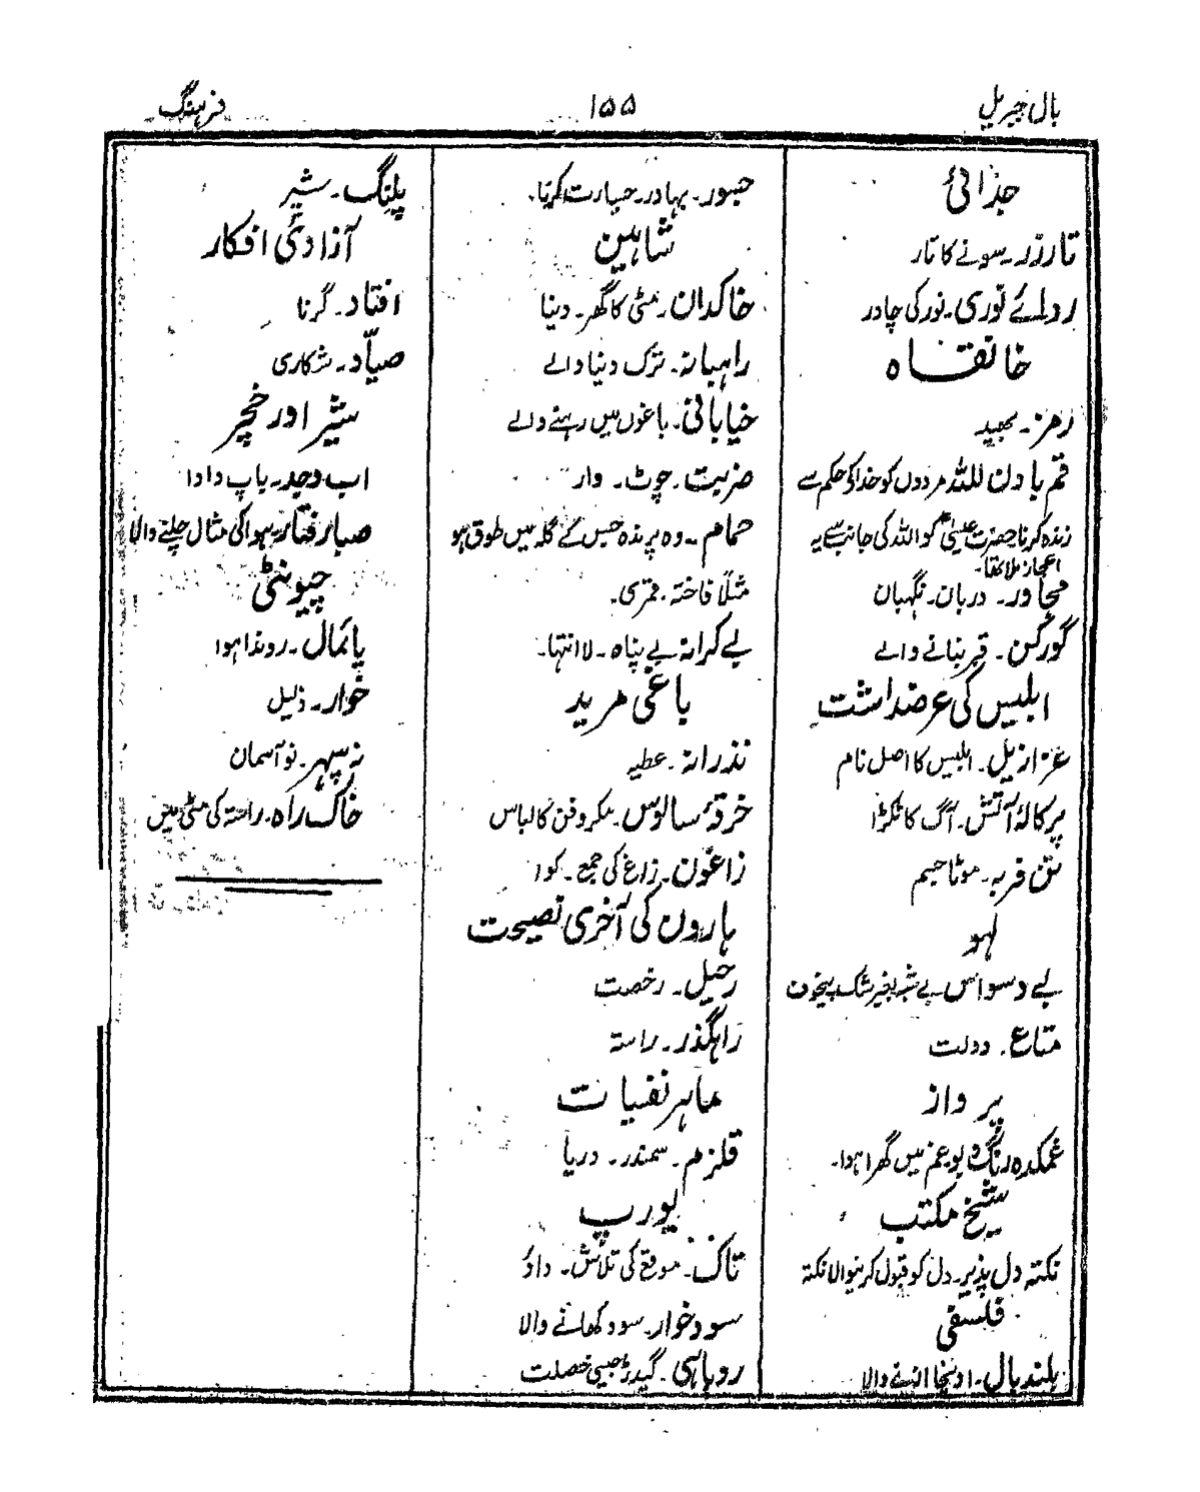 بال جبریل
۱۵۵
فرہنگ
جدائی
تارِ زر۔ سونے کا تار
ردائے نوری۔ نور کی چادر
خانقاہ
رمز۔ بھید
قم باذن اللہ مردوں کو خدا کی حکم سے
زندہ کرنا حضرت عیسیٰؑ کو اللہ کی جانب سے یہ
اعجاز ملا تھا۔
مجاور۔ دربان۔ نگہبان
گورکن۔ قبر بنانے والے
ابلیس کی عرضداشت
عزازیل۔ ابلیس کا اصل نام
پرکالۂ آتش۔ آگ کا ٹکڑا
تن فربہ۔ موٹا جسم
لہو
بے وسواس بے شبہ بغیر شک بیخوف
متاع۔ دولت
پرواز
غمکدہ رنگ و بو غم میں گھرا ہوا۔
شیخ مکتب
نکتہ دل پذیر۔ دل کو قبول کرنیوالا نکتہ
فلسفی
بلند بال۔ اونچا اڑنے والا
جسور۔ بہادر۔ جسارت کرنا۔
شاہین
خاکدان۔ مٹی کا گھر۔ دنیا
راہبانہ۔ ترک دنیا والے
خیابانی۔ باغوں میں رہنے والے
ضربت۔ چوٹ۔ وار
حمام۔ وہ پرندہ جس کے گلہ میں طوق ہو
مثلاً فاختہ، قمری۔
بے کرانہ بے پناہ۔ لا انتہا۔
باغی مرید
نذرانہ۔ عطیہ
خرقۂ سالوس۔ مکر و فن کا لباس
زاغون۔ زاغ کی جمع۔ کوا
ہارون کی آخری نصیحت
رحیل۔ رخصت
راہگذر۔ راستہ
ماہر نفسیات
قلزم۔ سمندر۔ دریا
یورپ
تاک۔ موقع کی تلاش۔ داؤ
سود خوار۔ سود کھانے والا
روباہی۔ گیدڑ جیسی خصلت
پلنگ۔ شیر
آزادئ افکار
افتاد۔ گرنا
صیاد۔ شکاری
شیر اور خچر
اب وجد۔ باپ دادا
صبا رفتار۔ ہوا کی مثال چلنے والا
چیونٹی
پائمال۔ روندا ہوا
خوار۔ ذلیل
نہ سپہر۔ نو آسمان
خاک راہ۔ راستہ کی مٹی میں